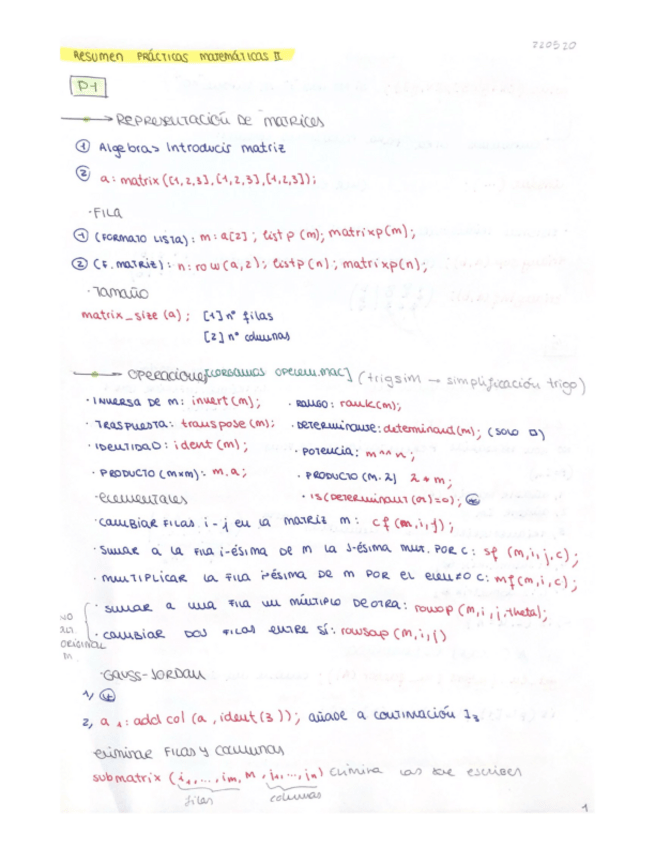 220520
RESUMEN PRÁCTICAS MATEMÁTICAS II
P-1
→ REPRESENTACIÓN DE MATRICES
① Algebra> Introducir matriz
② a: matrix([1,2,3],[1,2,3],[1,2,3]);
· FILA
① (FORMATO LISTA): m: a[2]; listp(m); matrixp(m);
② (F. MATRIZ): n: row(a,2); listp(n); matrixp(n);
· TAMAÑO
matrix_size(a); [1] nº filas
[2] nº columnas
→ OPERACIONES [CORDAMOS OPELEM.MAC] (trigsim → simplificación trigo)
· INVERSA DE M: invert(m); · RANGO: rank(m);
· TRASPUESTA: transpose(m); · DETERMINANTE: determinant(m); (SOLO □)
· IDENTIDAD: ident(m); · POTENCIA: m^^n;
· PRODUCTO (MXM): m.a; · PRODUCTO (M.2) 2*m;
· ELEMENTALES · IS(DETERMINANT(a)=0);
· CAMBIAR FILAS i-j EN LA MATRIZ M: cf(m,i,j);
· SUMAR A LA FILA i-ÉSIMA DE M LA J-ÉSIMA MULT. POR C: sf(m,i,j,c);
· MULTIPLICAR LA FILA i-ÉSIMA DE M POR EL ELEM≠0 C: mf(m,i,c);
· SUMAR A UNA FILA UN MÚLTIPLO DE OTRA: rowop(m,i,j,theta);
· CAMBIAR DOS FILAS ENTRE SÍ: rowsap(m,i,j)
NO
ORIGINAL
m.
· GAUSS-JORDAN
1,
2, a1: addcol(a, ident(3)); añade a continuación I3
ELIMINAR FILAS Y COLUMNAS
submatrix(i1,...,im, M, j1,...,jn) elimina las que escribes
filas columnas
1